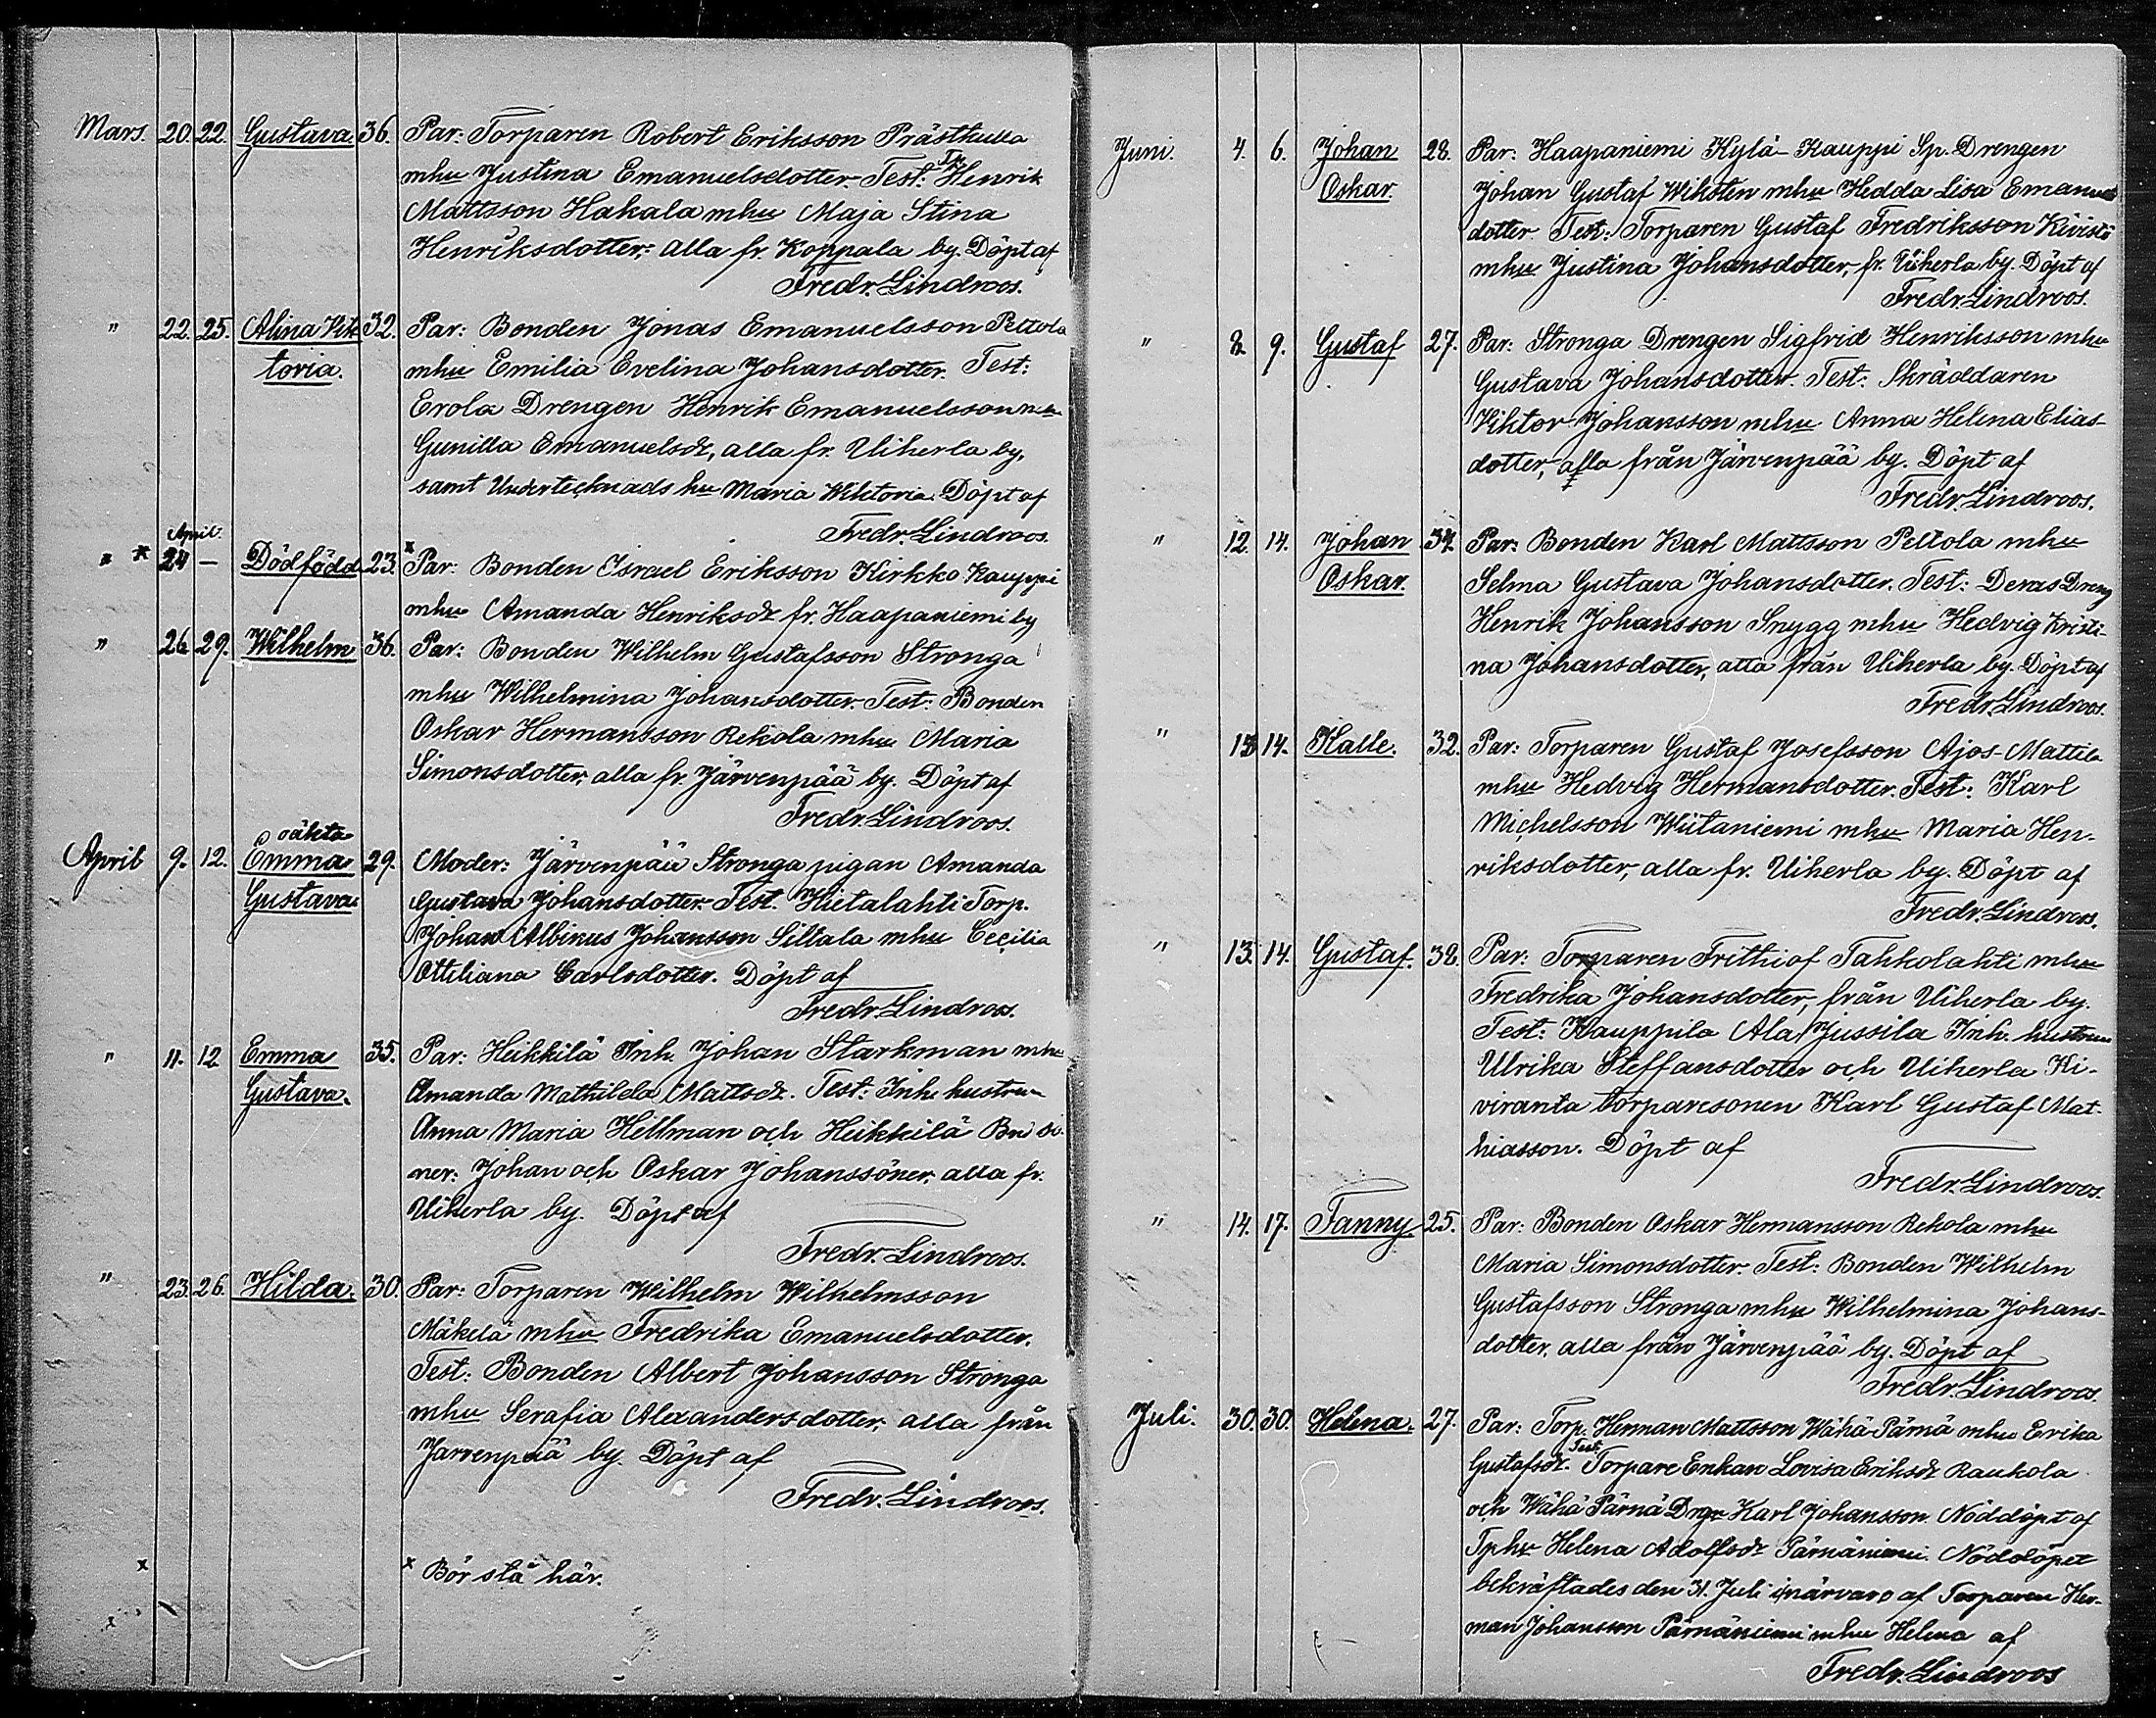 Mars. 20. 22. Gustava. 36. Par: Torparen Robert Eriksson Prästkulla
mhu Justina Emanuelsdotter. Test: Dr. Henrik
Mattsson Hakala mhu Maja Stina
Henriksdotter; alla fr. Koppala by. Döpt af
Fredr. Lindroos.
" 22. 25. Alina Vik- 32. Par: Bonden Jonas Emanuelsson Peltola
toria. mhu Emilia Evelina Johansdotter. Test:
Erola Drengen Henrik Emanuelsson
Gunilla Emanuelsdr, alla fr. Uiherla by,
samt Undertecknads hu Maria Wiktoria. Döpt af
Fredr. Lindroos.
April.
" * 24 — Dödfödd 23. x Par: Bonden Israel Eriksson Kirkko Kauppi
mhu Amanda Henriksdr fr. Haapaniemi by
" 26 29. Wilhelm 36. Par: Bonden Wilhelm Gustafsson Stronga
mhu Wilhelmina Johansdotter. Test: Bonden
Oskar Hermansson Rekola mhu Maria
Simonsdotter, alla fr. Järvenpää by. Döpt af
Fredr. Lindroos.
oäkta
April 9. 12. Emma 29. Moder: Järvenpää Stronga pigan Amanda
Gustava Gustava Johansdotter. Test. Hietalahti Torp.
Johan Albinus Johansson Siltala mhu Cecilia
Ottiliana Carlsdotter. Döpt af
Fredr. Lindroos.
" 11. 12 Emma 35. Par: Heikkilä Inh. Johan Starkman mhu
Gustava. Amanda Mathilda Mattsdr. Test: Inh. hustrun
Anna Maria Hellman och Heikkilä Bnd sö-
ner: Johan och Oskar Johanssöner, alla fr.
Uiherla by. Döpt af
Fredr. Lindroos.
" 23. 26. Hilda. 30. Par: Torparen Wilhelm Wilhelmsson
Mäkelä mhu Fredrika Emanuelsdotter.
Test: Bonden Albert Johansson Stronga
mhu Serafia Alexandersdotter, alla från
Jarvenpää by. Döpt af
Fredr. Lindroos.
x x Bör stå här.
Juni. 4. 6. Johan 28. Par: Haapaniemi Kylä-Kauppi Sp. Drengen
Oskar. Johan Gustaf Wiksten mhu Hedda Lisa Emanuels
dotter. Test: Torparen Gustaf Fredriksson Kivistö
mhu Justina Johansdotter, fr. Uiherla by. Döpt af
Fredr. Lindroos.
" 8. 9. Gustaf 27. Par: Stronga Drengen Sigfrid Henriksson mhu
Gustava Johansdotter. Test: Skräddaren
Viktor Johansson mhu Anna Helena Elias-
dotter, alla från Järvenpää by. Döpt af
Fredr. Lindroos.
" 12. 14. Johan 37. Par: Bonden Karl Mattsson Peltola mhu
Oskar. Selma Gustava Johansdotter. Test: Deras Dreng
Henrik Johansson Snygg mhu Hedvig Kristi-
na Johansdotter, alla från Uiherla by. Döpt af
Fredr. Lindroos.
" 13 14. Kalle. 32. Par: Torparen Gustaf Josefsson Ajos-Mattila
mhu Hedvig Hermansdotter. Test: Karl
Michelsson Wiitaniemi mhu Maria Hen-
riksdotter, alla fr. Uiherla by. Döpt af
Fredr. Lindroos.
" 13. 14. Gustaf. 38. Par: Torparen Frithiof Tahkolahti mhu
Fredrika Johansdotter, från Uiherla by.
Test: Kauppila Ala Jussila Inh. hustrun
Ulrika Steffansdotter och Uiherla Ki-
viranta torparesonen Karl Gustaf Mat-
hiasson. Döpt af
Fredr. Lindroos.
" 14. 17. Fanny. 25. Par: Bonden Oskar Hermansson Rekola mhu
Maria Simonsdotter. Test: Bonden Wilhelm
Gustafsson Stronga mhu Wilhelmina Johans-
dotter, alla från Järvenpää by. Döpt af
Fredr. Lindroos.
Juli. 30. 30. Helena. 27. Par: Torp. Herman Mattsson Wähä-Pärnä mhu Erika
Gustafsdr. Test. Torpare Enkan Lovisa Eriksdr Raukola
och Wähä Pärnä Drgn Karl Johansson. Nöddöpt af
Tphu Helena Adolfsdr Pärnäniemi. Nöddöpet
bekräftades den 31. Juli i närvaro af Torparen Her-
man Johansson Pärnäniemi mhu Helena af
Fredr. Lindroos